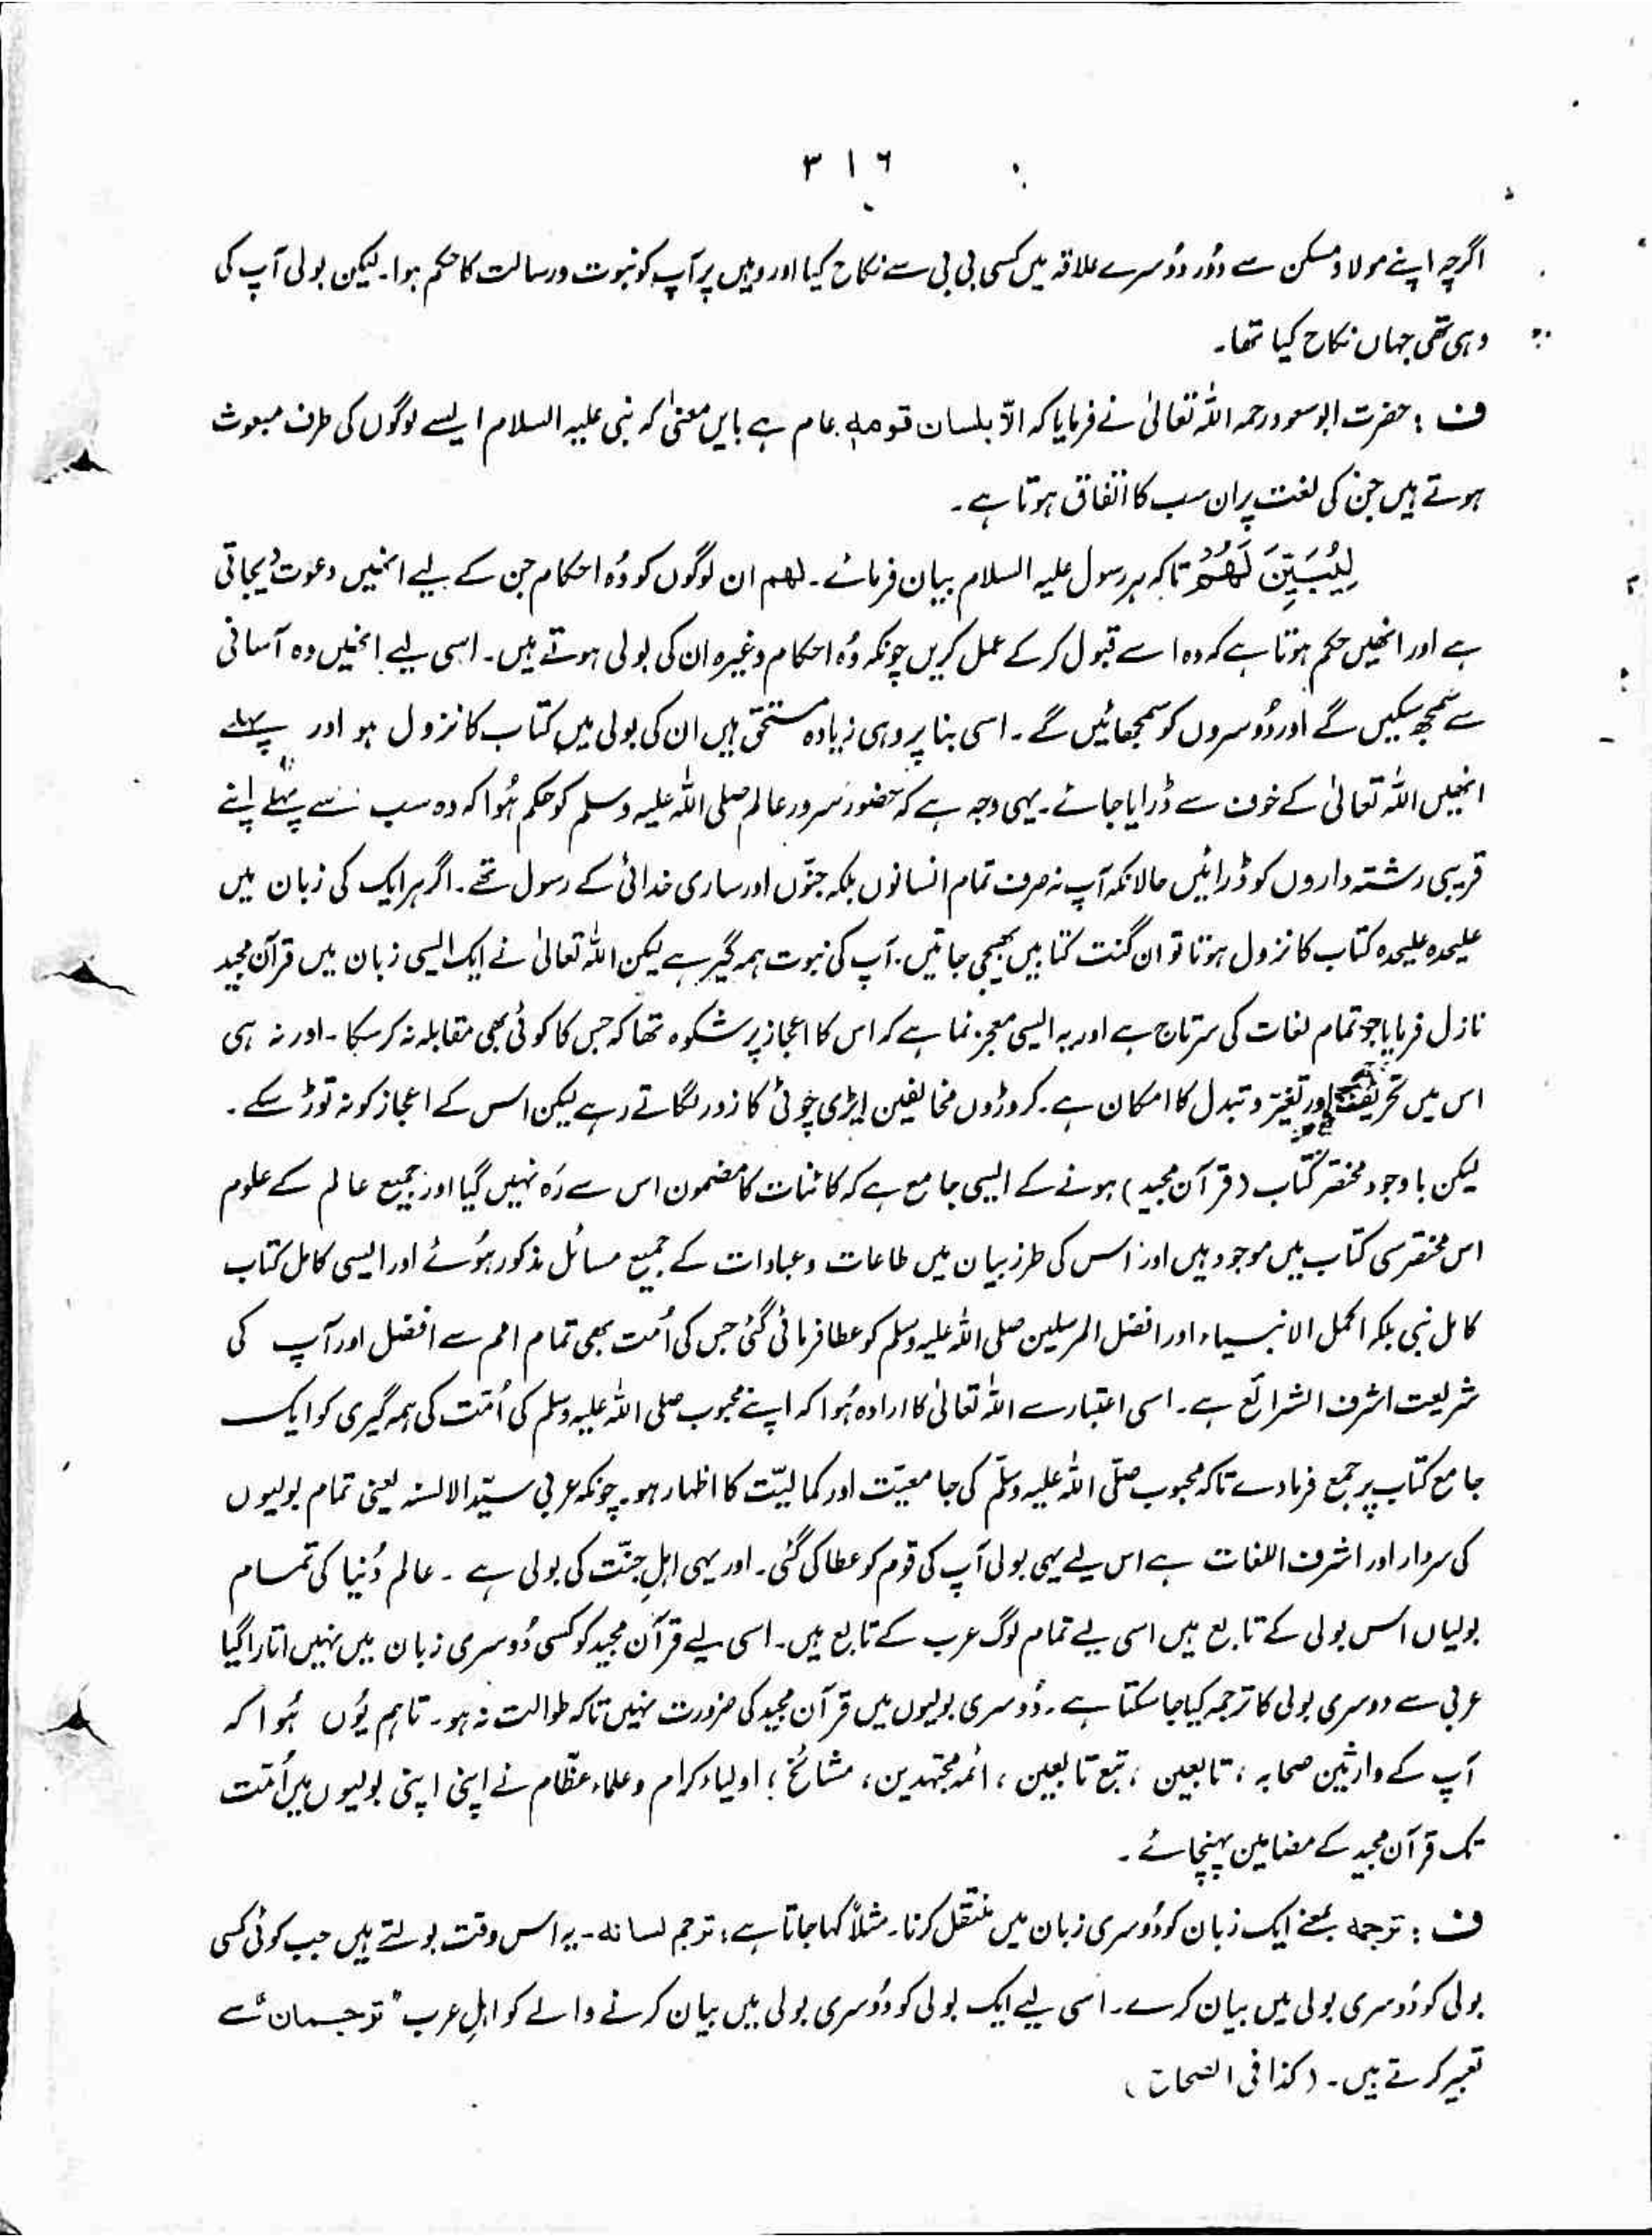 ۳۱۶
اگرچہ اپنے مولد و مسکن سے دُور دُوسرے علاقہ میں کسی بی بی سے نکاح کیا اور وہیں پر آپ کو نبوت و رسالت کا حکم ہوا۔ لیکن بولی آپ کی
وہی تھی جہاں نکاح کیا تھا۔
ف : حضرت ابو سعود رحمہ اللہ تعالیٰ نے فرمایا کہ الّا بلسان قومہٖ عام ہے بایں معنیٰ کہ نبی علیہ السلام ایسے لوگوں کی طرف مبعوث
ہوتے ہیں جن کی لغت پر ان سب کا اتفاق ہوتا ہے۔
لِیُبَیِّنَ لَھُمْ تاکہ ہر رسول علیہ السلام بیان فرمائے۔ لھم ان لوگوں کو وُہ احکام جن کے لیے انھیں دعوت دیجاتی
ہے اور انھیں حکم ہوتا ہے کہ وہ اسے قبول کر کے عمل کریں چونکہ وُہ احکام وغیرہ ان کی بولی ہوتے ہیں۔ اسی لیے انھیں وہ آسانی
سے سمجھ سکیں گے اور دُوسروں کو سمجھائیں گے۔ اسی بنا پر وہی زیادہ مستحق ہیں ان کی بولی میں کتاب کا نزول ہو اور پہلے
انھیں اللہ تعالیٰ کے خوف سے ڈرایا جائے۔ یہی وجہ ہے کہ حضور سرور عالم صلی اللہ علیہ وسلم کو حکم ہُوا کہ وہ سب سے پہلے اپنے
قریبی رشتہ داروں کو ڈرائیں حالانکہ آپ نہ صرف تمام انسانوں بلکہ جنّوں اور ساری خدائی کے رسول تھے۔ اگر ہر ایک کی زبان میں
علیحدہ علیحدہ کتاب کا نزول ہوتا تو ان گنت کتابیں بھیجی جاتیں۔ آپ کی نبوت ہمہ گیر ہے لیکن اللہ تعالیٰ نے ایک ایسی زبان میں قرآن مجید
نازل فرمایا جو تمام لغات کی سرتاج ہے اور یہ ایسی معجز نما ہے کہ اس کا اعجاز پر شکوہ تھا کہ جس کا کوئی بھی مقابلہ نہ کر سکا۔ اور نہ ہی
اس میں تحریف اور تغیّر و تبدل کا امکان ہے۔ کروڑوں مخالفین ایڑی چوٹی کا زور لگاتے رہے لیکن اس کے اعجاز کو نہ توڑ سکے۔
لیکن باوجود مختصر کتاب (قرآن مجید) ہونے کے ایسی جامع ہے کہ کائنات کا مضمون اس سے رَہ نہیں گیا اور جمیع عالم کے علوم
اس مختصر سی کتاب میں موجود ہیں اور اس کی طرز بیان میں طاعات و عبادات کے جمیع مسائل مذکور ہُوئے اور ایسی کامل کتاب
کامل نبی بلکہ اکمل الانبیاء اور افضل المرسلین صلی اللہ علیہ وسلم کو عطا فرمائی گئی جس کی اُمت بھی تمام امم سے افضل اور آپ کی
شریعت اشرف الشرائع ہے۔ اسی اعتبار سے اللہ تعالیٰ کا ارادہ ہُوا کہ اپنے محبوب صلی اللہ علیہ وسلم کی اُمّت کی ہمہ گیری کو ایک
جامع کتاب پر جمع فرما دے تاکہ محبوب صلّی اللہ علیہ وسلّم کی جامعیّت اور کمالیّت کا اظہار ہو۔ چونکہ عربی سیّد الالسنہ یعنی تمام بولیوں
کی سردار اور اشرف اللغات ہے اس لیے یہی بولی آپ کی قوم کو عطا کی گئی۔ اور یہی اہلِ جنّت کی بولی ہے ۔ عالم دُنیا کی تمام
بولیاں اس بولی کے تابع ہیں اسی لیے تمام لوگ عرب کے تابع ہیں۔ اسی لیے قرآن مجید کو کسی دُوسری زبان میں نہیں اتارا گیا
عربی سے دوسری بولی کا ترجمہ کیا جا سکتا ہے ۔ دُوسری بولیوں میں قرآن مجید کی ضرورت نہیں تاکہ طوالت نہ ہو۔ تاہم یُوں ہُوا کہ
آپ کے وارثین صحابہ ، تابعین ، تبع تابعین ، ائمہ مجتہدین ، مشائخ ، اولیاء کرام و علماء عظّام نے اپنی اپنی بولیوں میں اُمّت
تک قرآن مجید کے مضامین پہنچائے ۔
ف : ترجمہ بمعنے ایک زبان کو دُوسری زبان میں منتقل کرنا۔ مثلاً کہا جاتا ہے ؛ ترجم لسانہ ۔ یہ اس وقت بولتے ہیں جب کوئی کسی
بولی کو دُوسری بولی میں بیان کرے ۔ اسی لیے ایک بولی کو دُوسری بولی میں بیان کرنے والے کو اہلِ عرب ”ترجمان“ سے
تعبیر کرتے ہیں۔ (کذا فی الصحاح)